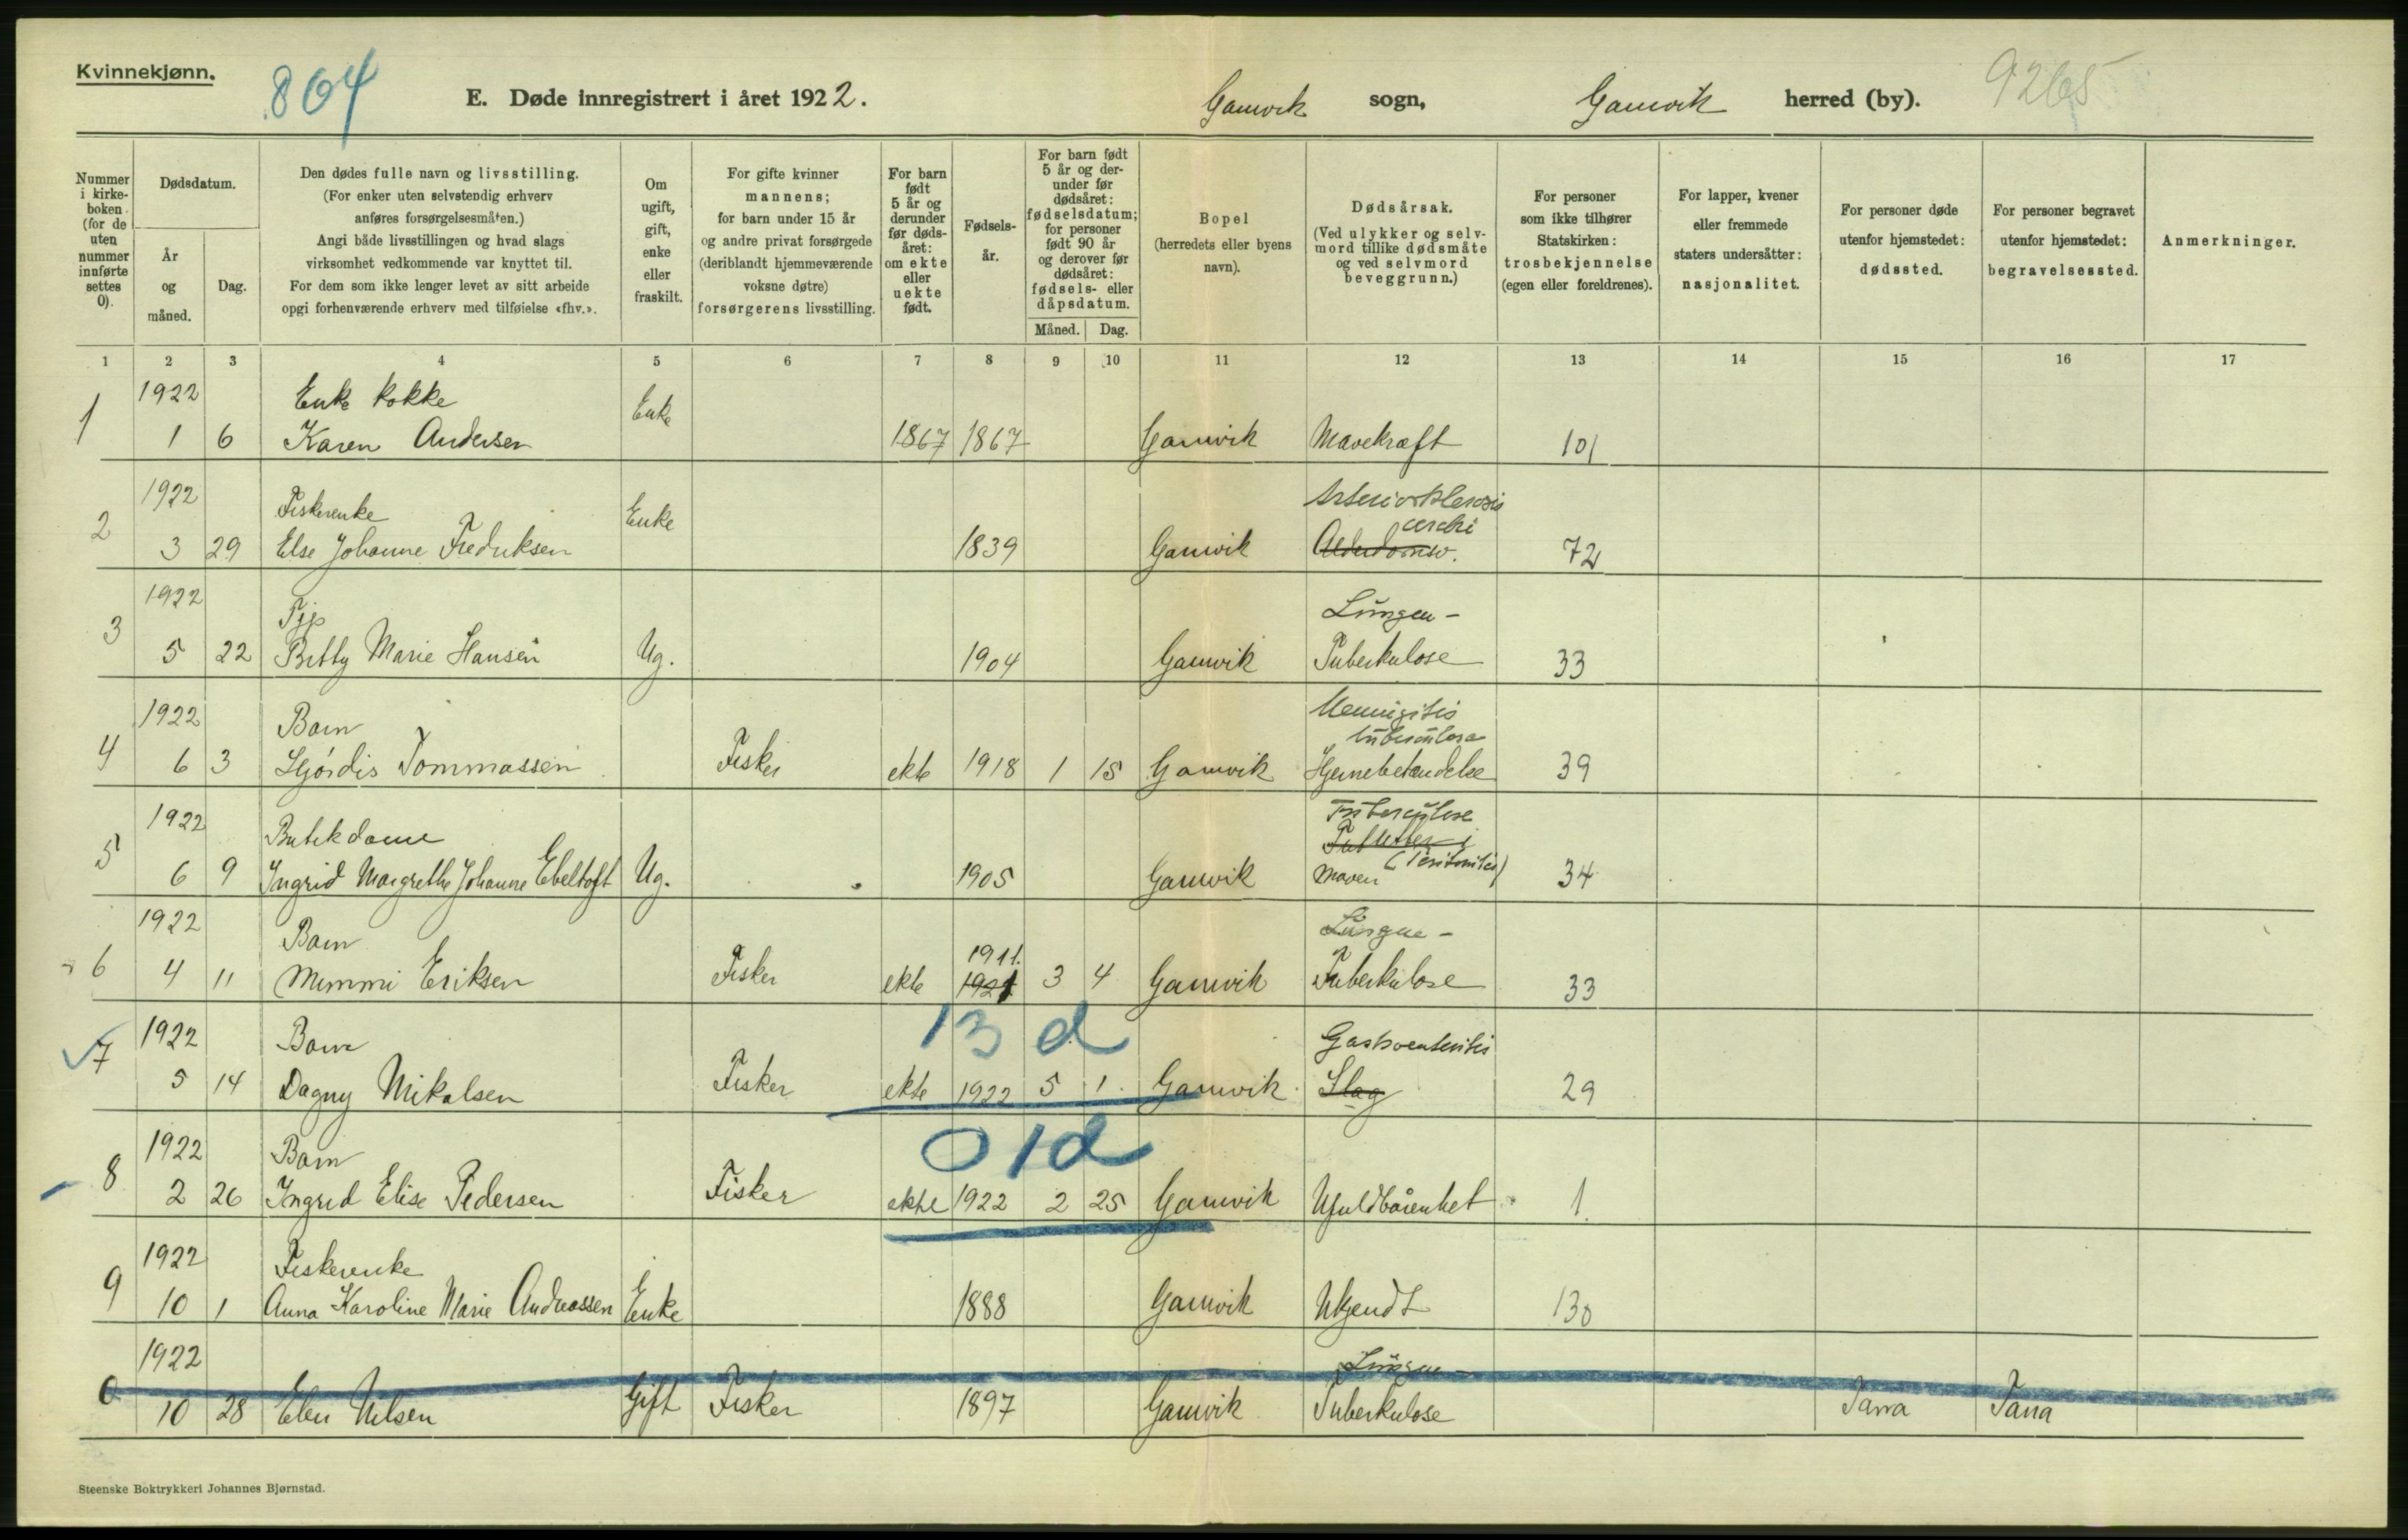 Kvinnekjønn.
804
E. Døde innregistrert i året 1922.
Gamvik sogn,
Gamvik herred (by).
9265
Nummer i kirkeboken (for de uten nummer innførte settes 0).
Dødsdatum.
År og måned.
Dag.
Den dødes fulle navn og livsstilling.
(For enker uten selvstendig erhverv
anføres forsørgelsesmåten.)
Angi både livsstillingen og hvad slags
virksomhet vedkommende var knyttet til.
For dem som ikke lenger levet av sitt arbeide
opgi forhenværende erhverv med tilføielse «fhv.».
Om
ugift,
gift,
enke
eller
fraskilt.
For gifte kvinner
mannens;
for barn under 15 år
og andre privat forsørgede
(deriblandt hjemmeværende
voksne døtre)
forsørgerens livsstilling.
For barn
født
5 år og
derunder
før døds-
året:
om ekte
eller
uekte
født.
Fødsels-
år.
For barn født
5 år og der-
under før
dødsåret:
fødselsdatum;
for personer
født 90 år
og derover før
dødsåret:
fødsels- eller
dåpsdatum.
Måned. Dag.
Bopel
(herredets eller byens
navn).
Dødsårsak.
(Ved ulykker og selv-
mord tillike dødsmåte
og ved selvmord
beveggrunn.)
For personer
som ikke tilhører
Statskirken:
trosbekjennelse
(egen eller foreldrenes).
For lapper, kvener
eller fremmede
staters undersåtter:
nasjonalitet.
For personer døde
utenfor hjemstedet:
dødssted.
For personer begravet
utenfor hjemstedet:
begravelsessted.
Anmerkninger.
1 2 3 4 5 6 7 8 9 10 11 12 13 14 15 16 17
1922 Enke kokke Enke
1 1 6 Karen Andersen 1867 1867 Gamvik Mavekræft 101
1922 Fiskerenke Enke Arteriosklerosis
cerebri
2 3 29 Else Johanne Fredriksen 1839 Gamvik Alderdomsv. 72
1922 Tjp Lungen -
3 5 22 Betty Marie Hansen Ug. 1904 Gamvik Tuberkulose 33
1922 Barn Meningitis
tuberculosa
4 6 3 Hjördis Tommassen Fisker ekte 1918 1 15 Gamvik Hjernebetændelse 39
1922 Butikdame Tuberculose
5 6 9 Ingrid Margrethe Johanne Ebeltoft Ug. 1905 Gamvik maven (Peritonitis) 34
1922 Barn 1911. Lungue -
6 4 11 Mimmi Eriksen Fisker ekte 1921 3 4 Gamvik Tuberkulose 33
13 d
1922 Barn Gastroenteritis
7 5 14 Dagny Mikalsen Fisker ekte 1922 5 1 Gamvik Slag 29
0 1 d
1922 Barn
8 2 26 Ingrid Elise Pedersen Fisker ekte 1922 2 25 Gamvik Ufuldbårenhet 1
1922 Fiskerenke
9 10 1 Anna Karoline Marie Andreassen Enke 1888 Gamvik Ukjendt 130
1922 Lungue -
0 10 28 Elen Nilsen Gift Fisker 1897 Gamvik Tuberkulose Tana Tana
Steenske Boktrykkeri Johannes Bjørnstad.